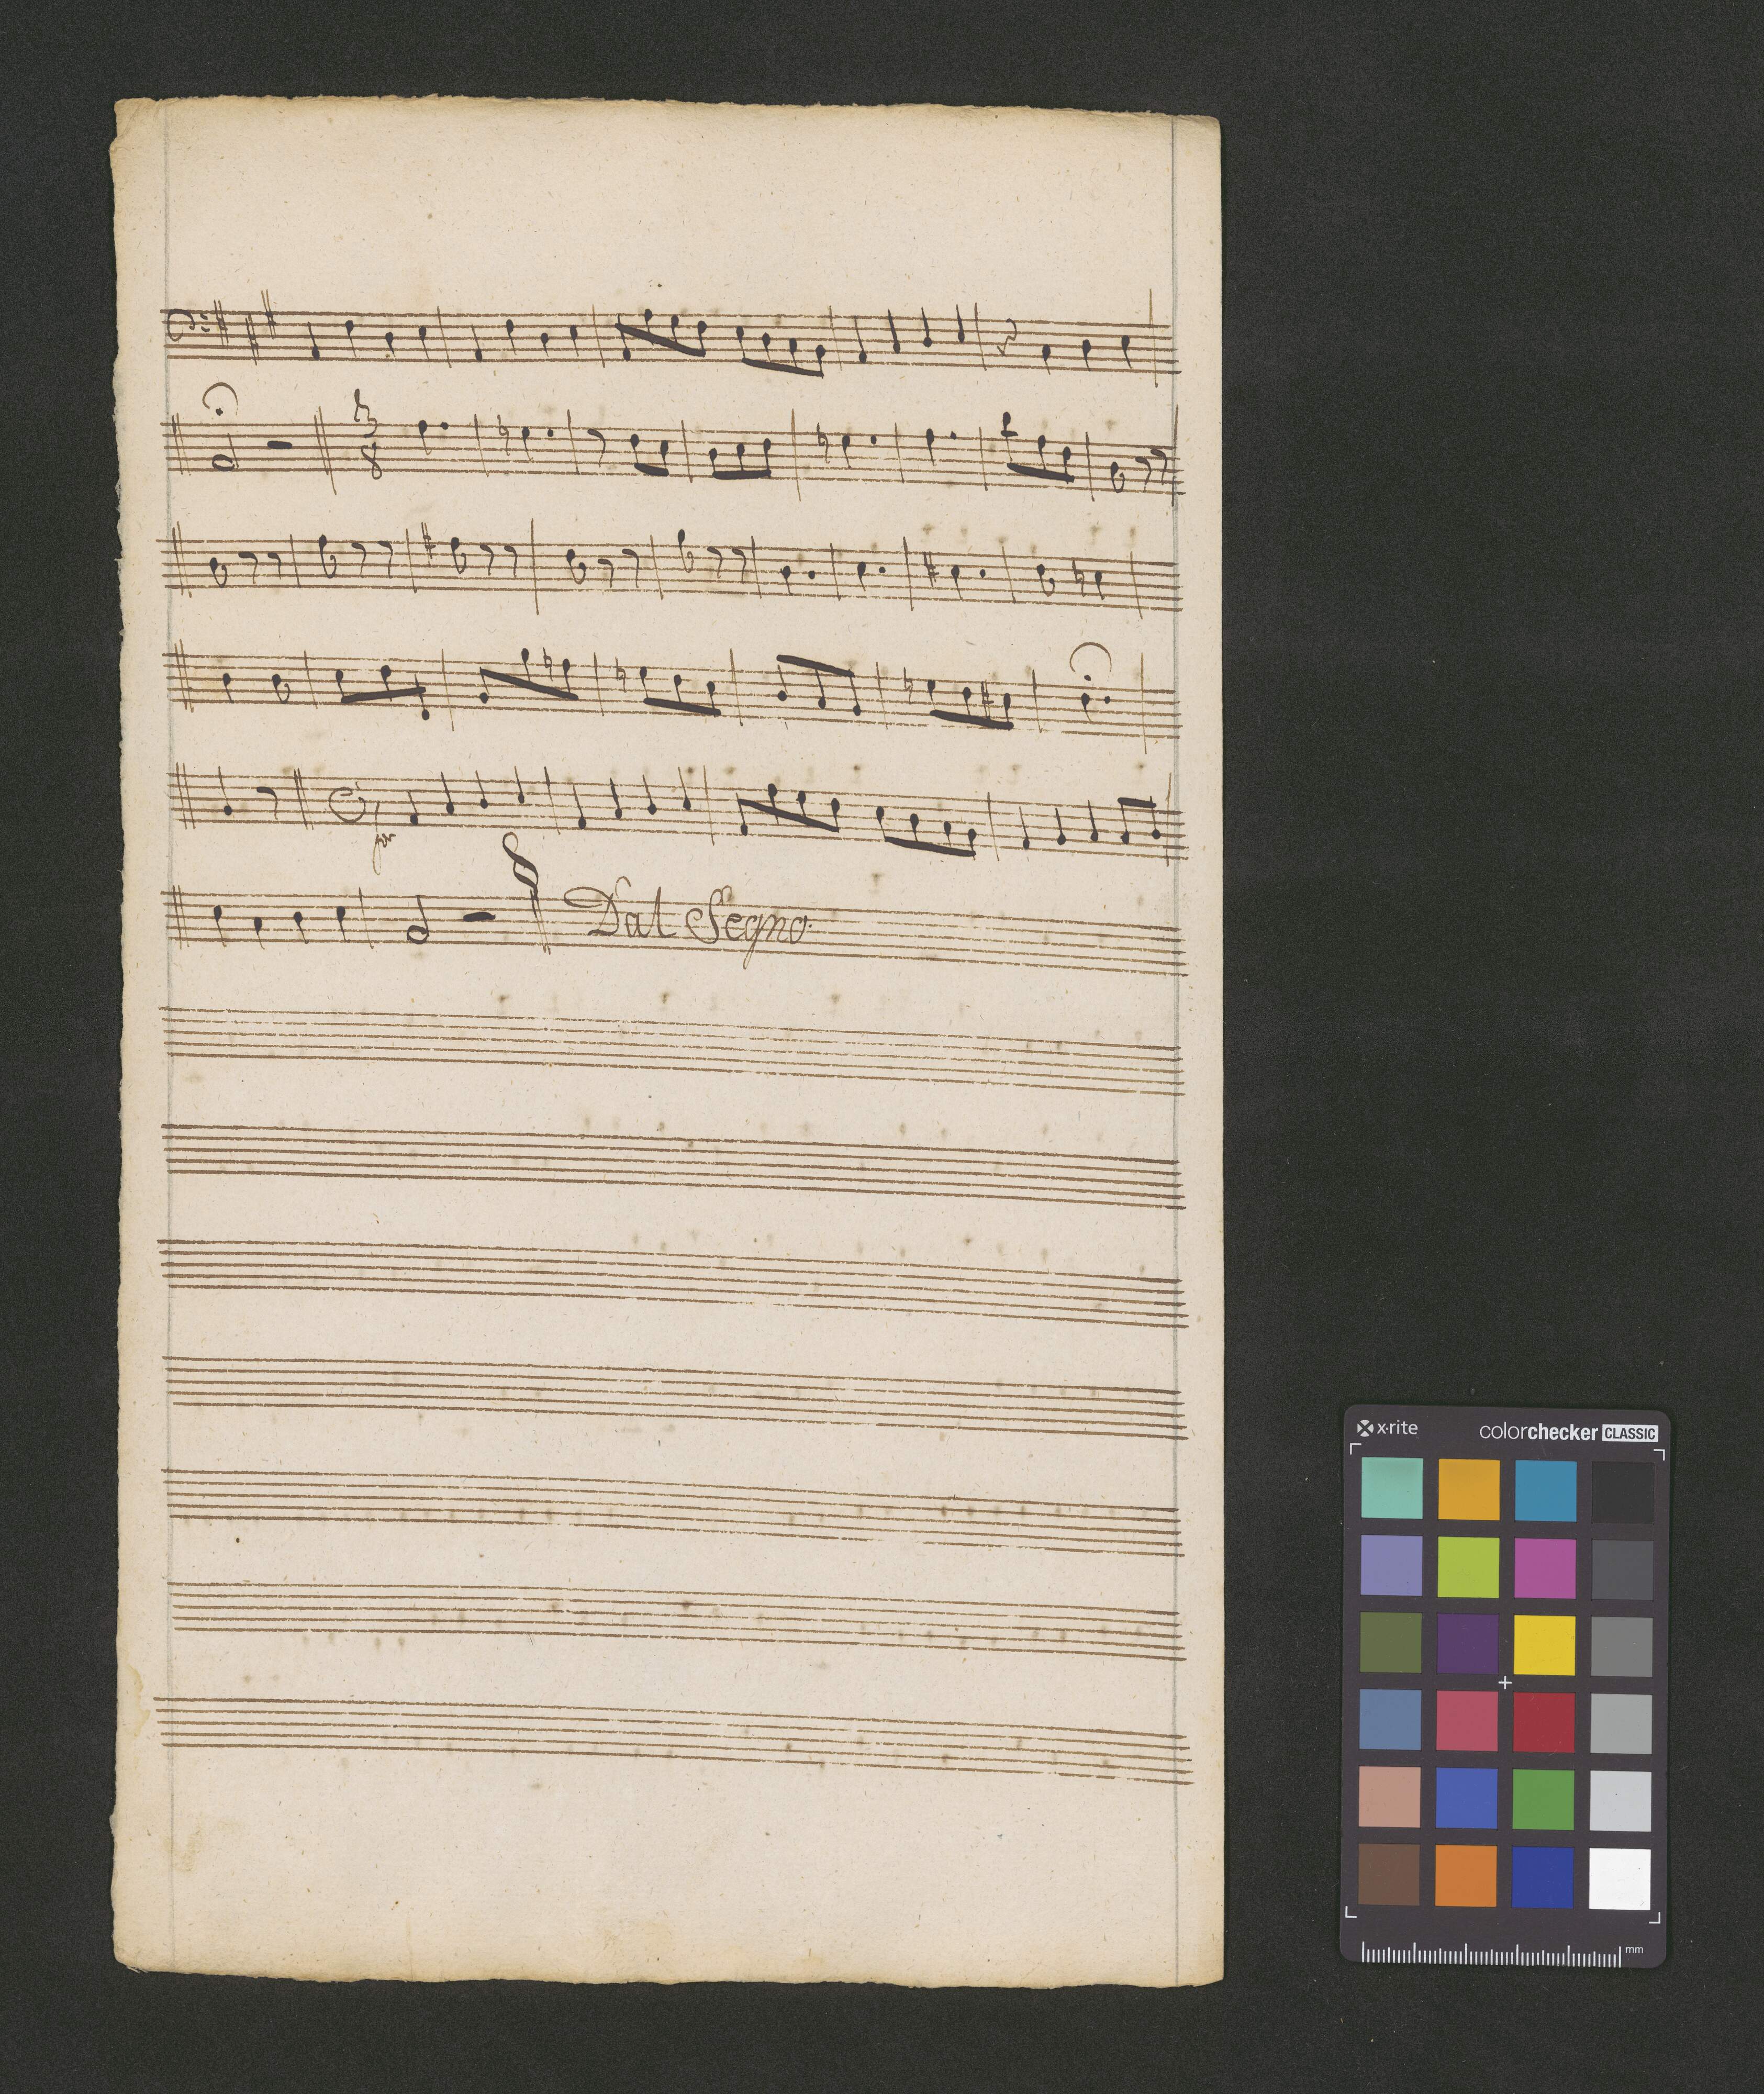 3
8
po
Dal Segno.
x-rite
colorchecker CLASSIC
mm